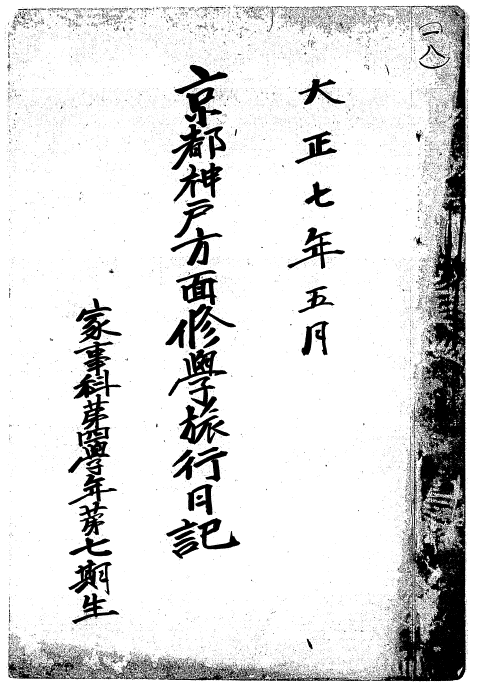 一八
大正七年五月
京都神戸方面修學旅行日記
家事科第四學年第七期生